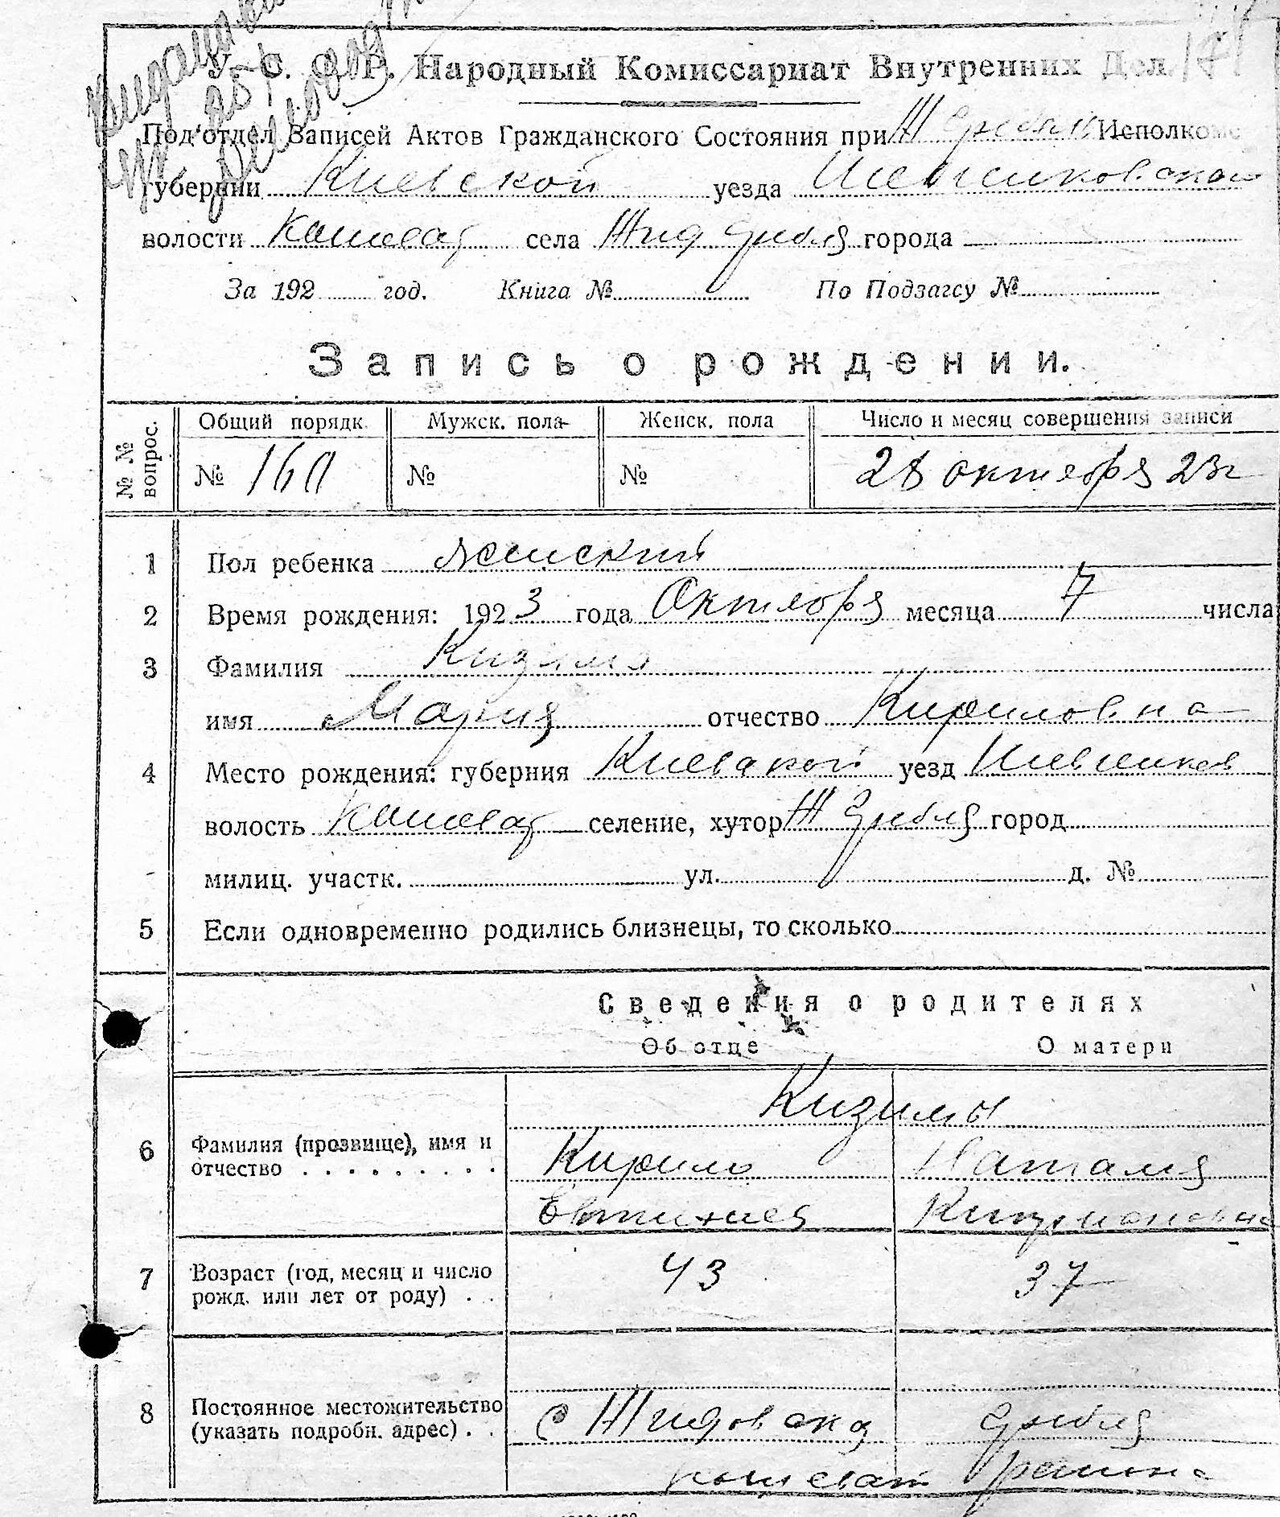 У. С. С. Р. Народный Комиссариат Внутренних Дел.
Подотдел Записей Актов Гражданского Состояния при Ж Гребл Исполкоме
губернии Киевской уезда Шевченковской
волости Кошеват села Жид Гребля города
За 192 год. Книга № По Подзагсу №
Запись о рождении.
№ № вопрос. Общий порядк. Мужск. пола Женск. пола Число и месяц совершения записи
№ 160 № № 28 октября 23 г
1 Пол ребенка женский
2 Время рождения: 1923 года Октября месяца 7 числа
3 Фамилия Кизима
имя Мария отчество Кириловна
4 Место рождения: губерния Киевской уезд Шевченков
волость Кошеват селение, хутор Ж Гребля город
милиц. участк. ул. д. №
5 Если одновременно родились близнецы, то сколько
Сведения о родителях
Об отце О матери
Кизимы
6 Фамилия (прозвище), имя и Кирило Наталя
отчество Киприановна
7 Возраст (год, месяц и число 43 37
рожд. или лет от роду)
8 Постоянное местожительство с Жидовска Гребля
(указать подробн. адрес) Кошеват района